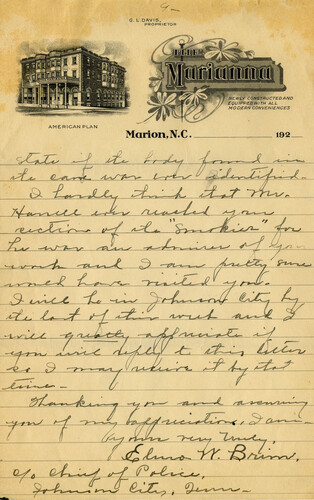 G. L. DAVIS,
PROPRIETOR
THE
Marianna
NEWLY CONSTRUCTED AND
EQUIPPED WITH ALL
MODERN CONVENIENCES
AMERICAN PLAN
Marion, N.C. 192
State if the body found in
the cave was ever identified.
I hardly think that Mr.
Harrell ever reached your
section of the "Smokies" for
he was an admirer of your
work and I am pretty sure
would have visited you.
I will be in Johnson City by
the last of this week and I
will greatly appreciate if
you will reply to this letter
so I may receive it by that
time -
Thanking you and assuring
you of my appreciation, I am -
Yours very truly,
Elmo W. Brim.
c/o Chief of Police,
Johnson City, Tenn -